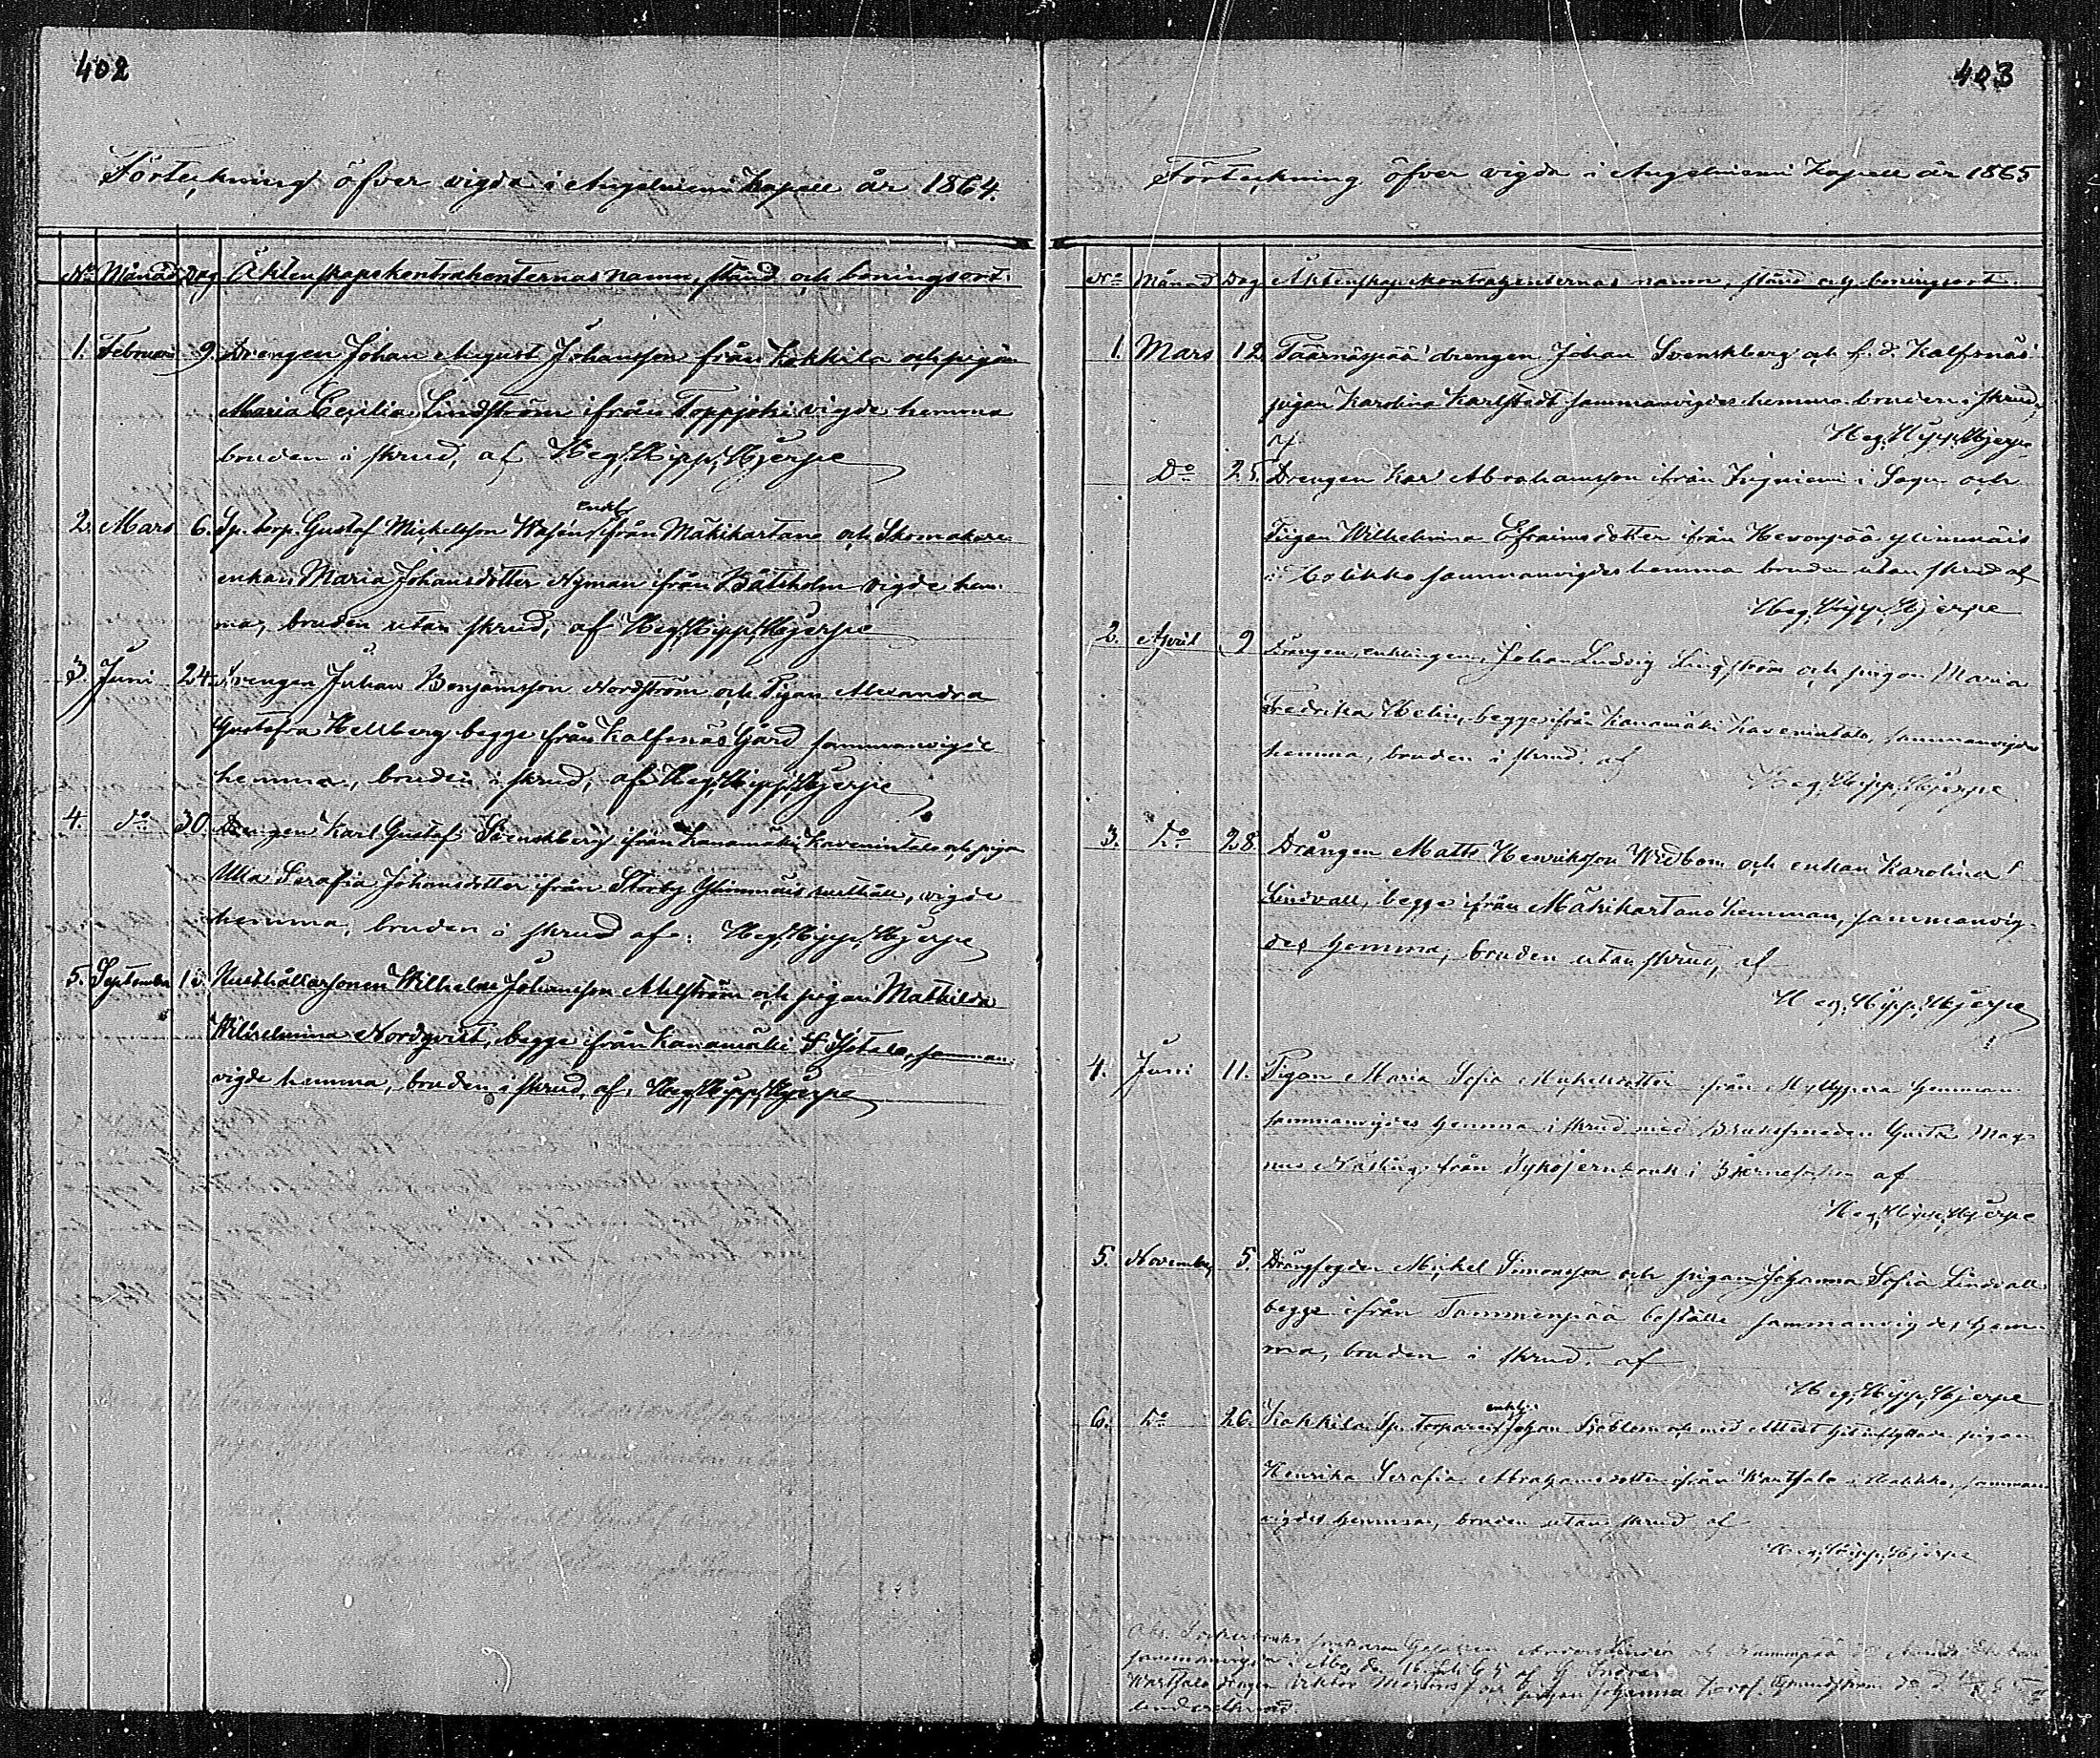 402
Förteckning öfver vigda i Angelniemi Kapell år 1864.
No Månad Dag Äktenskapskontrahenternas namn, stånd och boningsort.
1. Februari 9. Drengen Johan August Johansson från Kokkila och pigan
Maria Cecilia Lindström ifrån Toppjoki vigde hemma
bruden i skrud, af Heg. Hipp. Hjerpe
enkl.
2. Mars 6. Sp. torp. Gustaf Mickelsson ifrån Mäkikartano och Skomakare
enkan Maria Johansdotter Nyman ifrån Båtsholm vigde hem-
ma, bruden utan skrud, af Heg. Hipp. Hjerpe
3. Juni 24. Drengen Johan Benjamsson Nordström och Pigan Alexandra
Gustafva Hellberg begge från Kalfsnäs Gård sammanvigde
hemma, bruden i skrud, af Heg. Hipp. Hjerpe
4. do 30. Drengen Karl Gustaf Svenskberg ifrån Kanamäki Kavenintalo och piga
Ulla Serafia Johansdotter ifrån Storby Ylimmäis rusthåll, vigde
hemma, bruden i skrud af: Heg. Hipp. Hjerpe
5. September Rusthållarsonen Wilhelm Johansson Ahlström och pigan Mathilda
Wilhelmina Nordqvist, begge ifrån Kanamäki, samman-
vigde hemma, bruden i skrud, af, Heg. Hipp. Hjerpe
403
Förteckning öfver vigda i Angelniemi Kapell år 1865
No Månad Dag Äktenskapskontrahenternas namn, stånd och boningsort.
1. Mars 12. Täärnäspää drengen Johan Svenskberg och f.d. Kalfsnäs
pigan Karolina Karlstedt sammanvigdes hemma bruden i skrud,
af Heg. Hipp. Hjerpe
Do 25. Drengen Karl Abrahamsson ifrån i Sagu och
Pigan Wilhelmina Efraimsdotter ifrån Hevonpää ylimmäis
sammanvigdes hemma bruden utan skrud af
Heg. Hipp. Hjerpe
2. April 9 Drängen, enklingen, Johan Ludvig Lindström och pigan Maria
Fredrika Helin, begge ifrån Kanamäki Kavenintalo, sammanvigdes
hemma, bruden i skrud, af
Heg. Hipp. Hjerpe
3. Do 28. Drängen Matts Henriksson Widbom och enkan Karolina
Lindvall, begge ifrån Mäkikartano hemman, sammanvig-
des hemma, bruden utan skrud, af
Heg. Hipp. Hjerpe
4. Juni 11. Pigan Maria Sofia Mickelsdotter från Myllyperä hemman
sammanvigdes hemma i skrud med Bruksmeden Gusta Mag-
nus Näsling från Tykö jernbruk i Bjerno af
Heg. Hipp. Hjerpe
5. November 5. Drängfogden Mickel Simonsson och pigan Johanna Sofia Lindvall
begge ifrån Tammenpää boställe sammanvigdes hem-
ma, bruden i skrud, af
Heg. Hipp. Hjerpe
enkl.
6. Do 26. Kokkila Sp. Torparen Johan och med Attest hit inflyttade pigan
Henrika Serafia Abrahamsdotter ifrån Wartsala i Halikko, samman-
vigdes hemma, bruden utan skrud af
Heg. Hipp. Hjerpe
Obs.
sammanvigda i Åbo, den 16 Juli 65 af
Wartsala drengen Viktor och pigan Johanna Grundström